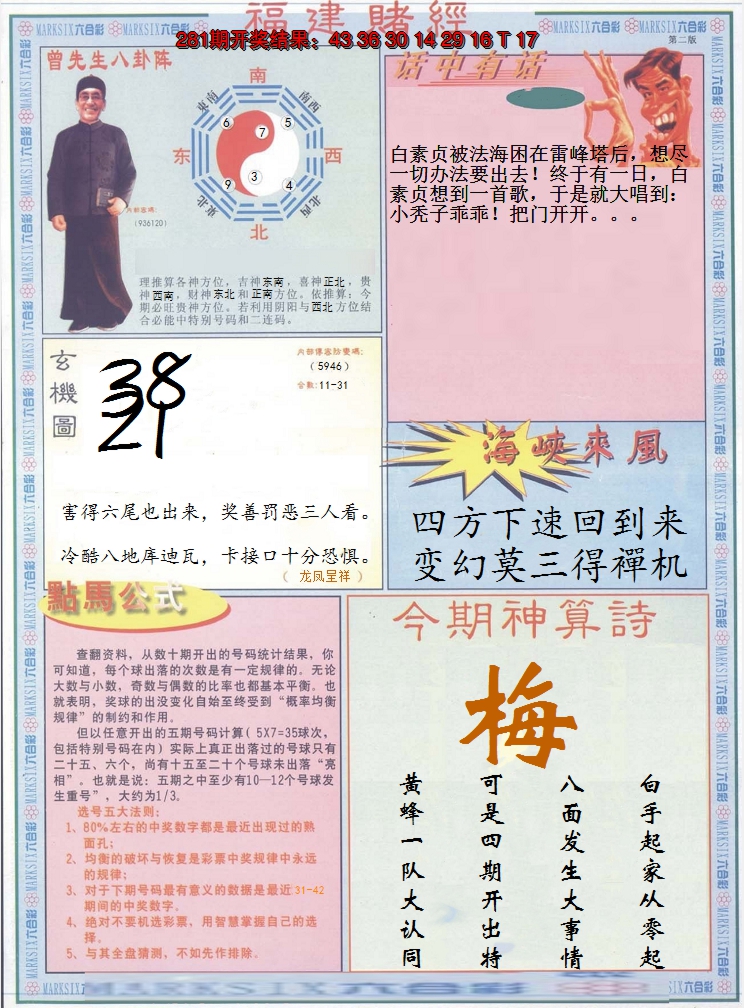 福建賭經
281期开奖结果：43 36 30 14 29 16 T 17
第二版
MARKSIX六合彩
曾先生八卦阵
南
东南
南西
6
5
7
东
西
3
9
4
東北
北西
北
内部密碼：
(936120)
理推算各神方位，吉神东南，喜神正北，贵
神西南，财神东北和正南方位。依推算：今
期必旺贵神方位。若利用阴阳与西北方位结
合必能中特别号码和二连码。
话中有话
白素贞被法海困在雷峰塔后，想尽
一切办法要出去！终于有一日，白
素贞想到一首歌，于是就大唱到：
小秃子乖乖！把门开开。。。
玄機圖
38
21
（5946）
合数:11-31
害得六尾也出来，奖善罚恶三人看。
冷酷八地库迪瓦，卡接口十分恐惧。
（ 龙凤呈祥 ）
海峽來風
四方下速回到来
变幻莫三得禪机
點馬公式
查翻资料，从数十期开出的号码统计结果，你
可知道，每个球出落的次数是有一定规律的。无论
大数与小数，奇数与偶数的比率也都基本平衡。也
就表明，奖球的出没变化自始至终受到“概率均衡
规律”的制约和作用。
但以任意开出的五期号码计算( 5X7=35球次，
包括特别号码在内) 实际上真正出落过的号球只有
二十五、六个，尚有十五至二十个号球未出落“亮
相”。也就是说：五期之中至少有10—12个号球发
生重号”，大约为1/3。
选号五大法则:
1、80%左右的中奖数字都是最近出现过的熟
面孔;
2、均衡的破坏与恢复是彩票中奖规律中永远
的规律;
3、对于下期号码最有意义的数据是最近31-42
期间的中奖数字。
4、绝对不要机选彩票，用智慧掌握自己的选
择。
5、与其全盘猜测，不如先作排除。
今期神算詩
梅
白手起家从零起
八面发生大事情
可是四期开出特
黄蜂一队大认同